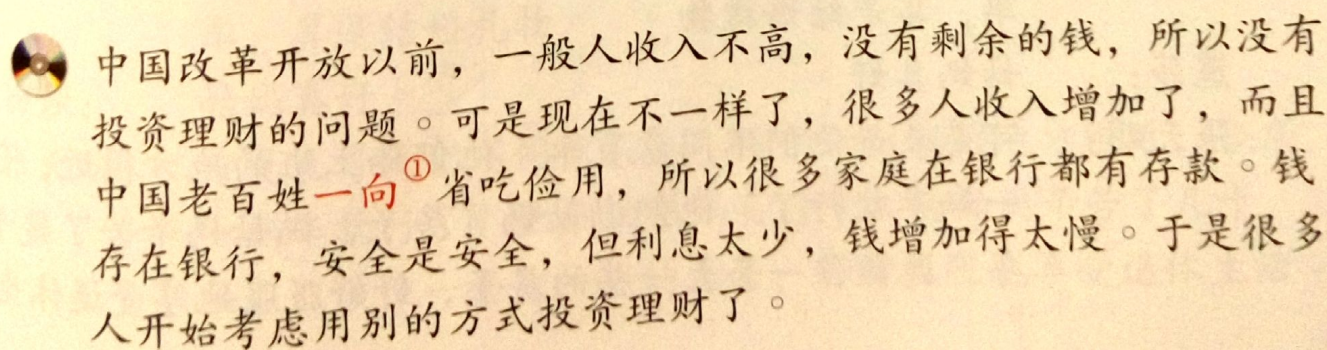 中国改革开放以前，一般人收入不高，没有剩余的钱，所以没有
投资理财的问题。可是现在不一样了，很多人收入增加了，而且
中国老百姓一向①省吃俭用，所以很多家庭在银行都有存款。钱
存在银行，安全是安全，但利息太少，钱增加得太慢。于是很多
人开始考虑用别的方式投资理财了。